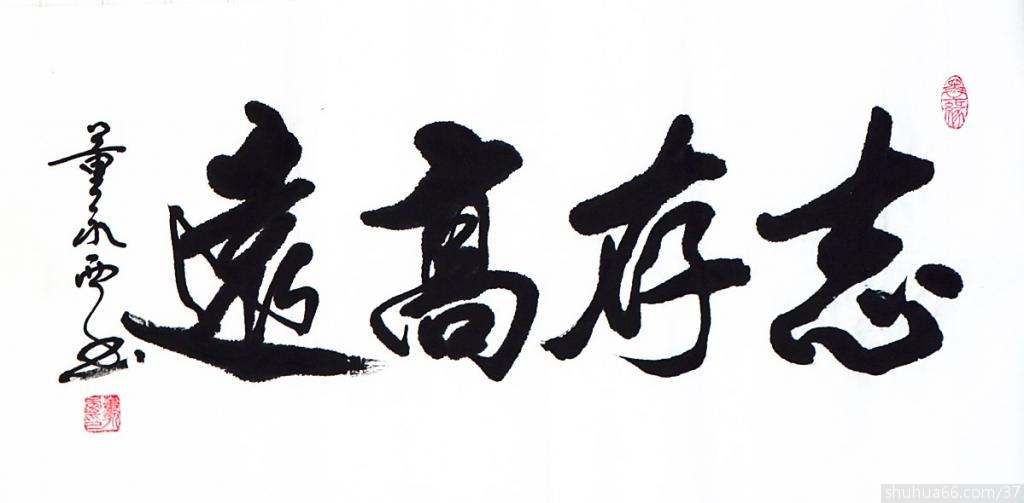 志存高遠
董永西书
shuhua66.com/37